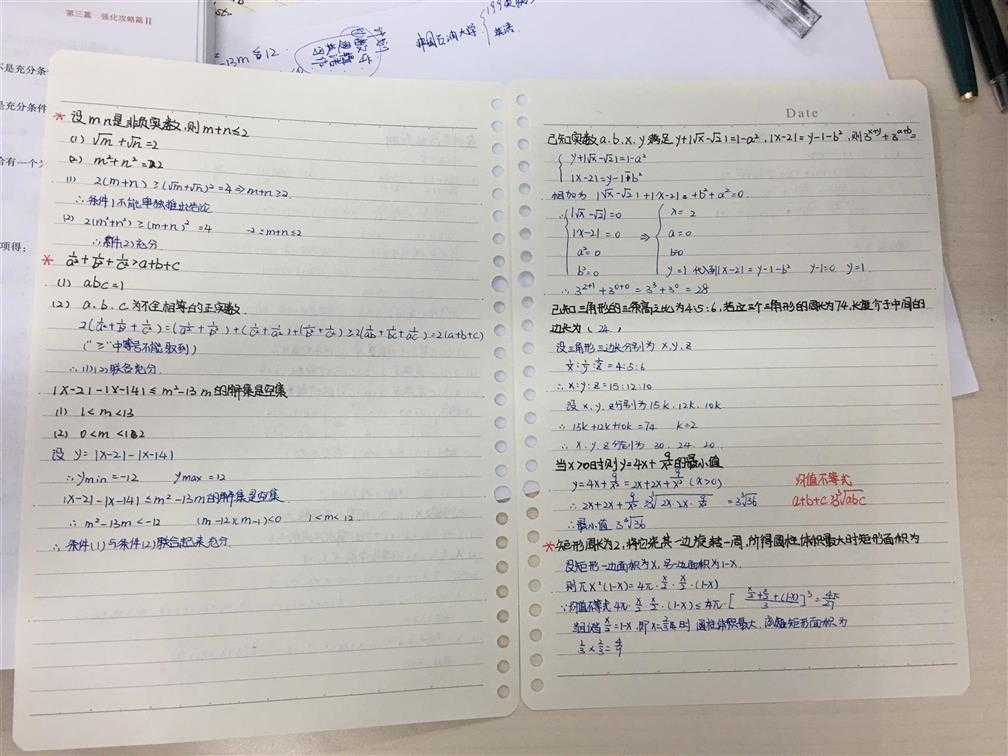 第三篇 强化攻略篇Ⅱ
不是充分条
是充分条件
项得:
-13m ≤ 12
中国石油大学
Date
* 设mn是非负实数,则m+n≤2
(1) √m+√n=2
(2) m²+n²=2
(1) 2(m+n)≥(√m+√n)²=4⇒m+n≥2
∴条件1不能单独推出结论
(2) 2(m²+n²)≥(m+n)²=4 -2≤m+n≤2
∴条件(2)充分
* 1/a²+1/b²+1/c²>a+b+c
(1) abc=1
(2) a、b、c为不全相等的正实数
2(1/a²+1/b²+1/c²)=(1/a²+1/b²)+(1/c²+1/a²)+(1/b²+1/c²)≥2(1/ab+1/bc+1/ac)=2(a+b+c)
("≥"中等号不能取到)
∴(1)(2)联合充分
|x-2|-|x-14|≤m²-13m的解集是空集
(1) 1<m<13
(2) 0<m<12
设 y=|x-2|-|x-14|
∴ymin=-12 ymax=12
|x-2|-|x-14|≤m²-13m的解集是空集
∴ m²-13m<-12 (m-12)(m-1)<0 1<m<12
∴条件(1)与条件(2)联合起来充分
已知实数a、b、x、y满足y+|√x-√2|=1-a²,|x-2|=y-1-b²,则3^(x+y)+3^(a+b)=
y+|√x-√2|=1-a²
|x-2|=y-1-b²
相加为 |√x-√2|+|x-2|+b²+a²=0
∴ |√x-√2|=0 x=2
|x-2|=0 ⇒ a=0
a²=0 b=0
b²=0 y=1 代入到|x-2|=y-1-b² y-1=0 y=1
∴ 3^(2+1)+3^(0+0)=3³+3⁰=28
已知三角形的三条高之比为4:5:6,若这三个三角形的周长为74,长度介于中间的
边长为(24)
设三角形三边长分别为x,y,z
1/x:1/y:1/z=4:5:6
∴x:y:z=15:12:10
设x,y,z分别为15k,12k,10k
∴15k+12k+10k=74 k=2
∴x,y,z分别为30、24、20
当x>0时,则y=4x+9/x²的最小值
y=4x+9/x²=2x+2x+9/x² (x>0)
∴2x+2x+9/x²≥3∛(2x·2x·9/x²)=3∛36
∴最小值3∛36
均值不等式
a+b+c≥3∛abc
* 矩形周长为2,将它绕其一边旋转一周,所得圆柱体体积最大时矩形面积为
设矩形一边面积为x,另一边面积为1-x
则πx²(1-x)=4π·x/2·x/2·(1-x)
∵均值不等式4π·x/2·x/2·(1-x)≤4π·[(x/2+x/2+(1-x))/3]³=4π/27
当且仅当x/2=1-x,即x=2/3时圆柱体积最大,
1/3×2/3=